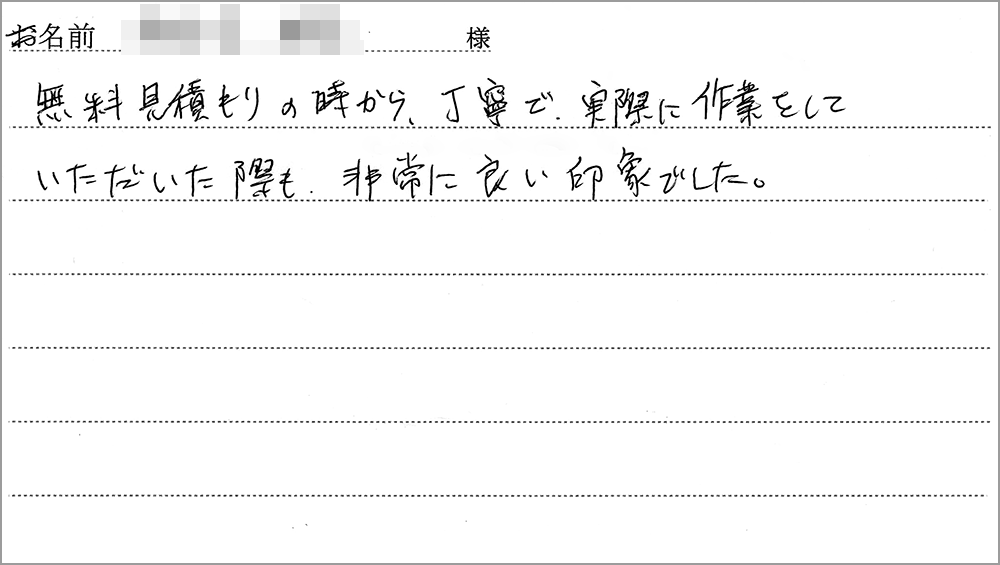 お名前 様
無料見積もりの時から、丁寧で、実際に作業をして
いただいた際も、非常に良い印象でした。